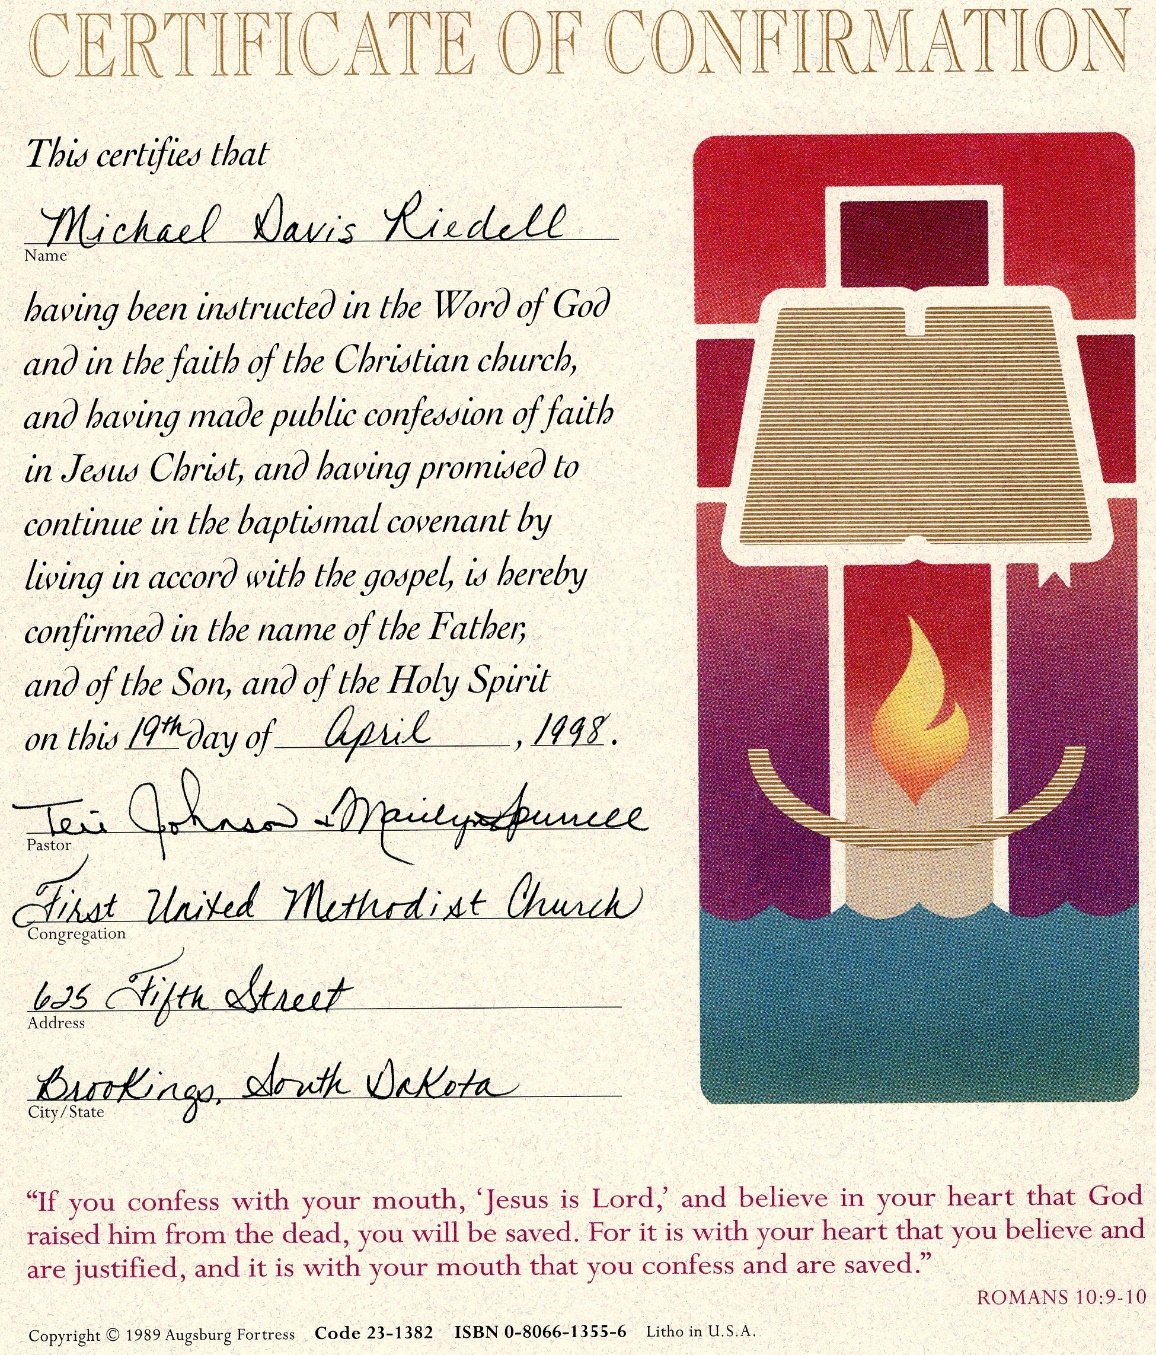 CERTIFICATE OF CONFIRMATION
This certifies that
Michael Davis Riedell
Name
having been instructed in the Word of God
and in the faith of the Christian church,
and having made public confession of faith
in Jesus Christ, and having promised to
continue in the baptismal covenant by
living in accord with the gospel, is hereby
confirmed in the name of the Father,
and of the Son, and of the Holy Spirit
on this 19th day of April, 1998.
Teri Johnson + Marilyn Spurrell
Pastor
First United Methodist Church
Congregation
625 Fifth Street
Address
Brookings, South Dakota
City/State
“If you confess with your mouth, ‘Jesus is Lord,’ and believe in your heart that God
raised him from the dead, you will be saved. For it is with your heart that you believe and
are justified, and it is with your mouth that you confess and are saved.”
ROMANS 10:9-10
Copyright © 1989 Augsburg Fortress Code 23-1382 ISBN 0-8066-1355-6 Litho in U.S.A.